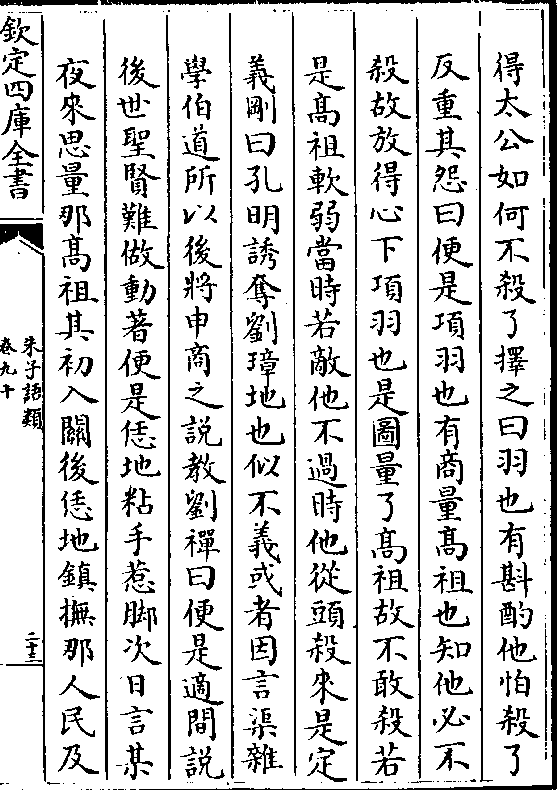 得太公如何不殺了擇之曰羽也有斟酌他怕殺了
反重其怨曰便是項羽也有商量高祖也知他必不
殺故放得心下項羽也是圖量了高祖故不敢殺若
是高祖軟弱當時若敵他不過時他從頭殺來是定
義剛曰孔明誘奪劉璋地也似不義或者因言渠雜
學伯道所以後將申商之說教劉禪曰便是適間說
後世聖賢難做動著便是恁地粘手惹脚次日言某
夜來思量那高祖其初入關後恁地鎮撫那人民及
欽定四庫全書
朱子語類
卷九十
二十三